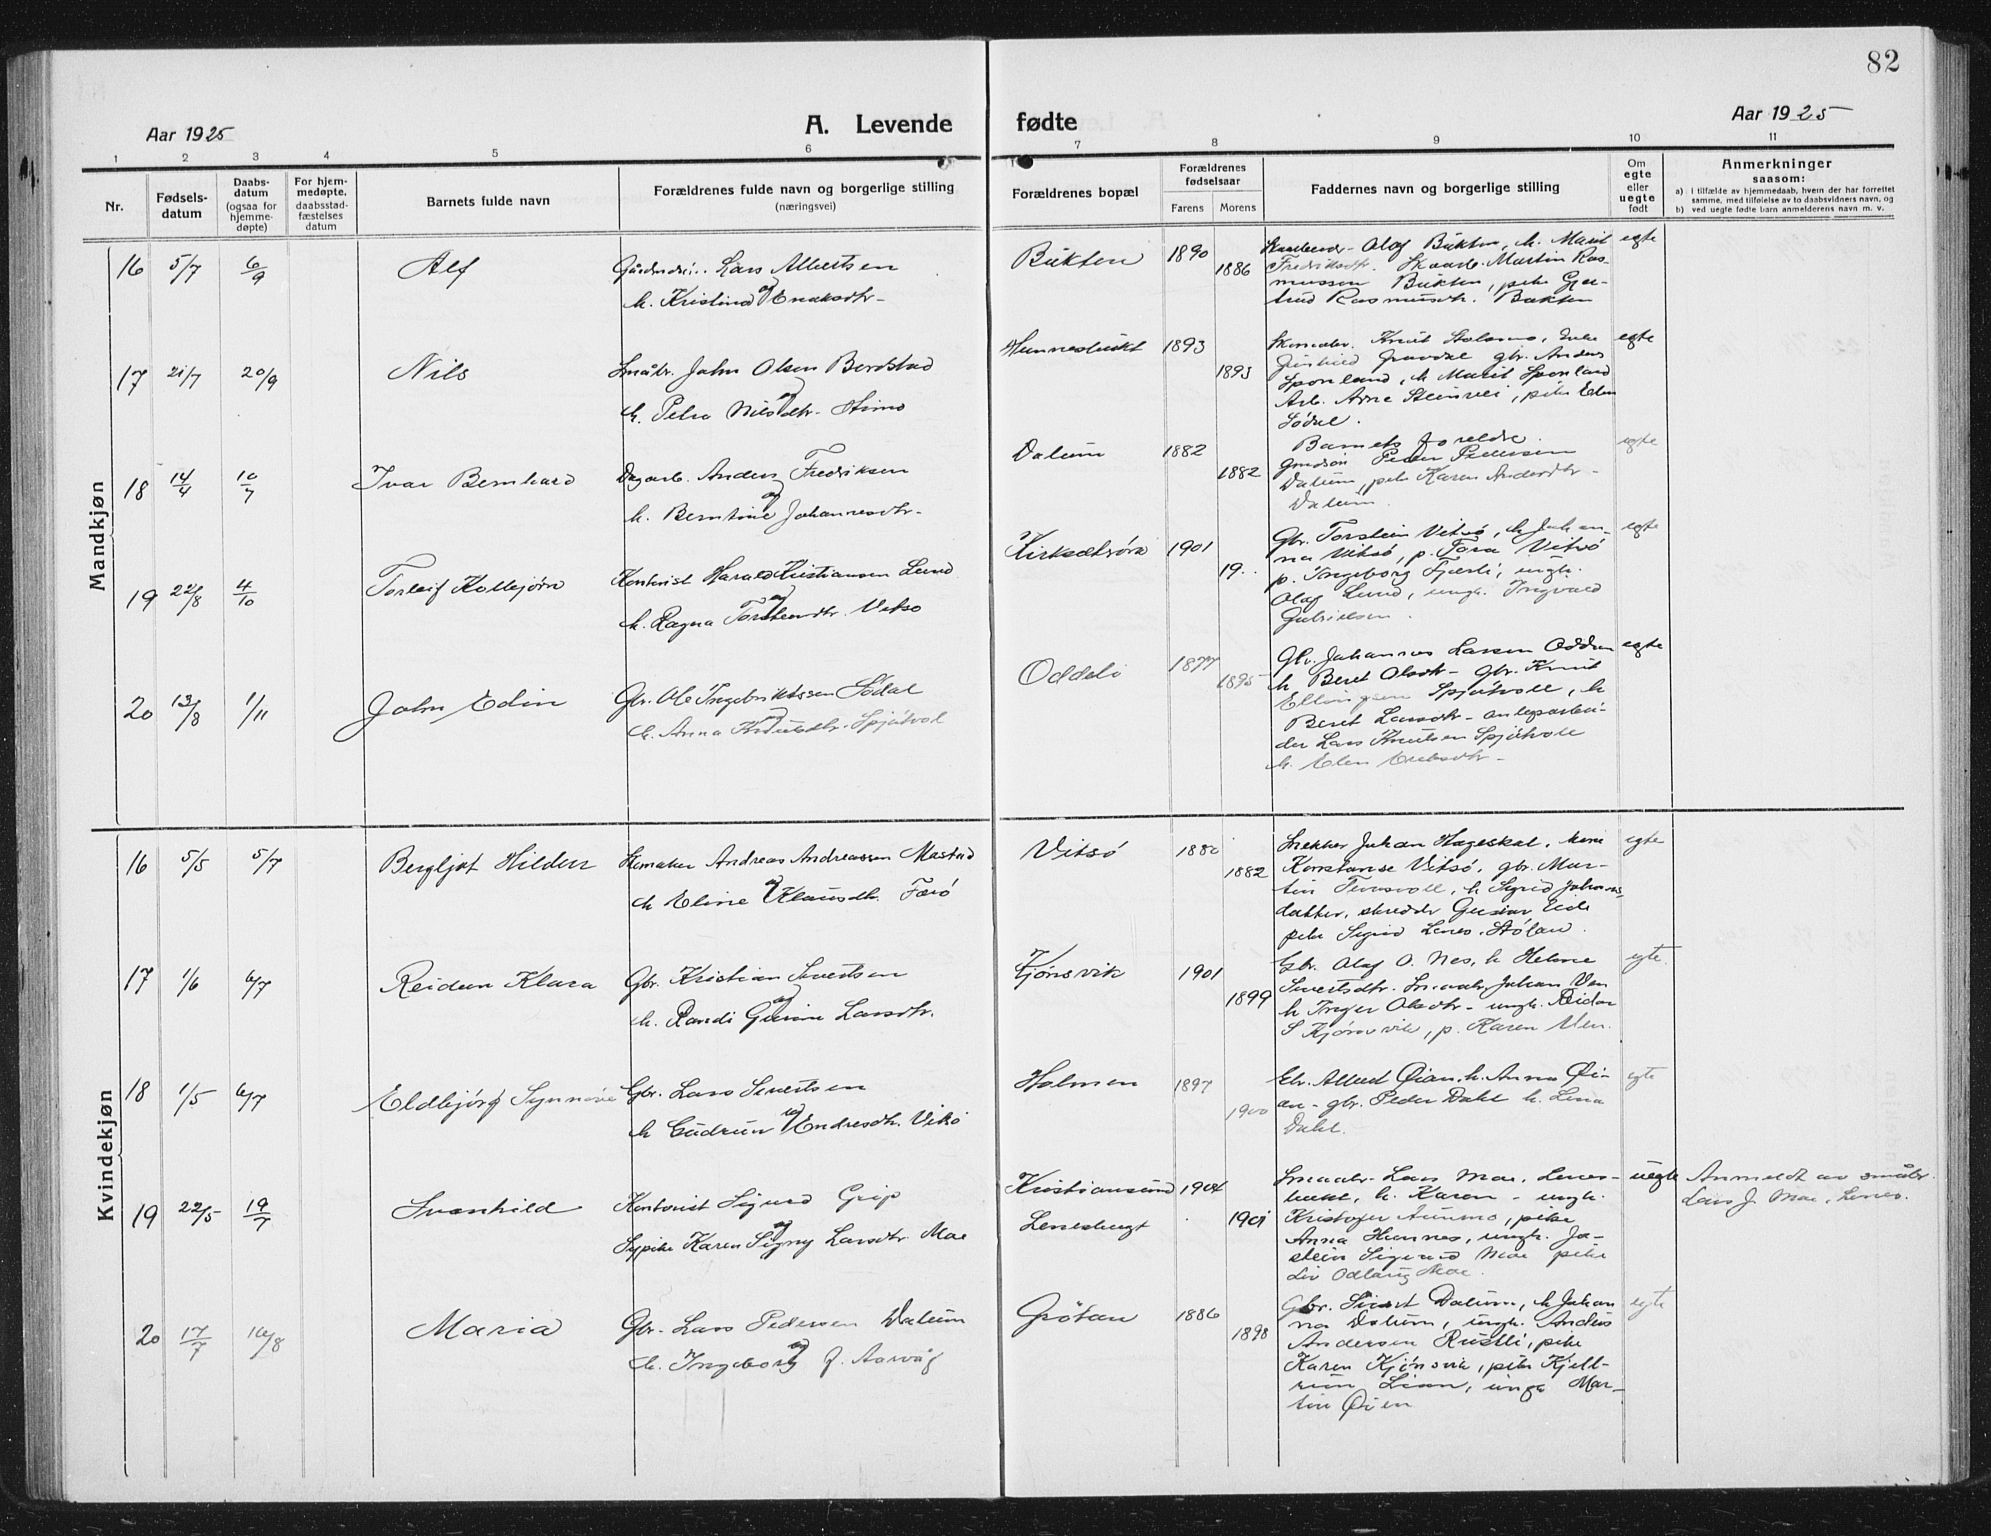 82
Aar 1925
A. Levende fødte
Aar 1925
1 2 3 4 5 6 7 8 9 10 11
Nr.
Fødsels-
datum
Daabs-
datum
(ogsaa for
hjemme-
døpte)
For hjem-
medøpte,
daabsstad-
fæstelses
datum
Barnets fulde navn
Forældrenes fulde navn og borgerlige stilling
(næringsvei)
Forældrenes bopæl
Forældrenes
fødselsaar
Farens Morens
Faddernes navn og borgerlige stilling
Om
egte
eller
uegte
født
Anmerkninger
saasom:
a) I tilfælde av hjemmedaab, hvem der har forrettet
samme, med tilføielse av to daabsvidners navn, og
b) ved uegte fødte barn anmelderens navn m. v.
Mandkjøn
16 5/7 6/9 Alf
Lars Albertsen
og
h. Kristina
Bukten 1890 1886
Olaf Bukten, h. Marit
Fredriksdtr. Martin Ras-
mussen Bukten, pike Gjer-
trud Rasmusdtr. Bukten
egte
17 21/7 20/9 Nils
Småbr. John Olsen Bordstad
og
h. Petra Nilsdtr.
1893 1893
Knut
gbr. Anders
h. Marit
Arb. Arne Steinvei, pike
Södal.
egte
18 14/4 10/7 Ivar Bernhard
Dagarb. Anders Fredriksen
og
h. Berntine Johannesdtr.
Dalum 1882 1882
Barnets foreldre.
Peder Pedersen
Dalum, pike Karen Andersdtr.
Dalum.
egte
19 22/8 4/10 Torleif Kolbjørn
Kontorist Harald Kristiansen Lund
og
h. Ragna Torsteindtr. Vitsø
Kirksæterøra 1901 19..
Gbr. Torstein Vitsö, h. Johan-
na Vitsö, p. Tora Vitsö
p. Ingeborg Fjærli, ungk.
Olaf Lund, ungk. Ingvald
Gabrielsen.
egte
20 13/8 1/11 John Edin
Gbr. Ole Ingebriktssen Södal
og
h. Anna Knutsdtr. Spjötvol
Oddeli 1877 1895
Gbr. Johannes Larsen Odden
h. Beret Olsdtr. gbr. Knut
Ellingsen Spjötvoll, h.
Beret Larsdtr. anlegsarbei-
der Lars Knutsen Spjötvoll
h. Elen
egte
Kvindekjøn
16 5/5 5/7 Bergljot Hildur
Andreas Andreassen Mastad
og
h. Eline Klausdtr. Færö
Vitsö 1882
Snekker Johan Hageskal,
Konstanse Vitsö, gbr. Mar-
tin h. Sigrid Johannes-
datter, skredder Gustav
pike Sigrid Lenes,
egte
17 1/6 6/7 Reidun Klara
Gbr. Kristian Sivertsen
og
h. Randi Gurine Larsdtr.
Kjönsvik 1901 1899
Gbr. Olaf O. Nes, h. Helene
Sivertsdtr. Johan Ven
h. Inger Olsdtr. ungk. Reidar
S Kjönsvik, p. Karen
egte.
18 1/5 6/7 Eldbjörg Synnöve
Gbr. Lars Sivertsen
og
h. Gudrun Andresdtr. Vitsö
Holmen 1897 1900
Gbr. Albert Øian, h. Anna Øi-
an – gbr. Peder Dahl h. Lina
Dahl.
egte
19 22/5 19/7 Svanhild
Kontorist Sigurd Grip
og
Sypike Karen Signy Larsdtr. Moe
Kristiansund
Lenesbugt
1904 1901
Lars Moe, Lenes-
h. Karen – ungk.
Kristofer Aunmo, pike
Anna Hennes, ungk. Jo-
stein Sigurd Moe pike
Liv Odlaug Moe.
uegte
Anmeldt av småbr.
Lars J. Moe, Lenes.
20 17/7 16/8 Maria
Gbr. Lars Pedersen Dalum
og
h. Ingeborg f. Aarvåg
Grötan 1886 1898
Gbr. Sivert Dalum, h. Johan
na Dalum, ungk. Anders
Andersen Rustli, pike
Karen Kjönsvik, pike Kjell-
rün Lian, ungk. Mar-
tin Øien
egte